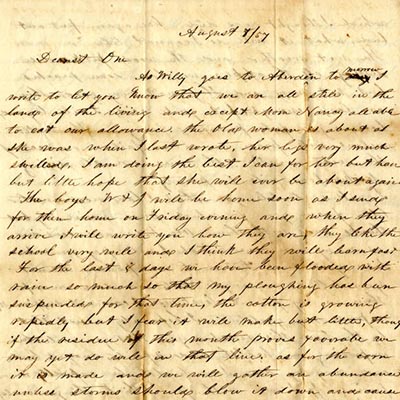 August 8/57
Dearest One
As Willy goes to Aberdeen to morrow I
write to let you know that we are all still in the
land of the living and except Mom Nanny all able
to eat our allowance. the Old woman is about as
she was when I last wrote, her legs very much
swelled. I am doing the best I can for her but have
but little hope that she will ever be about again
The boys W & J will be home soon as I send
for them home on Friday evening and when they
arrive I will write you how they are, they like the
school very well and I think they will learn fast
For the last 8 days we have been flooded with
rain so much so that my ploughing has been
suspended for that time, the cotton is growing
rapidly but I fear it will make but little, though
if the residue of this month proves favorable we
may yet do well in that line, as for the corn
it is made and we will gather an abundance
unless storms should blow it down and cause